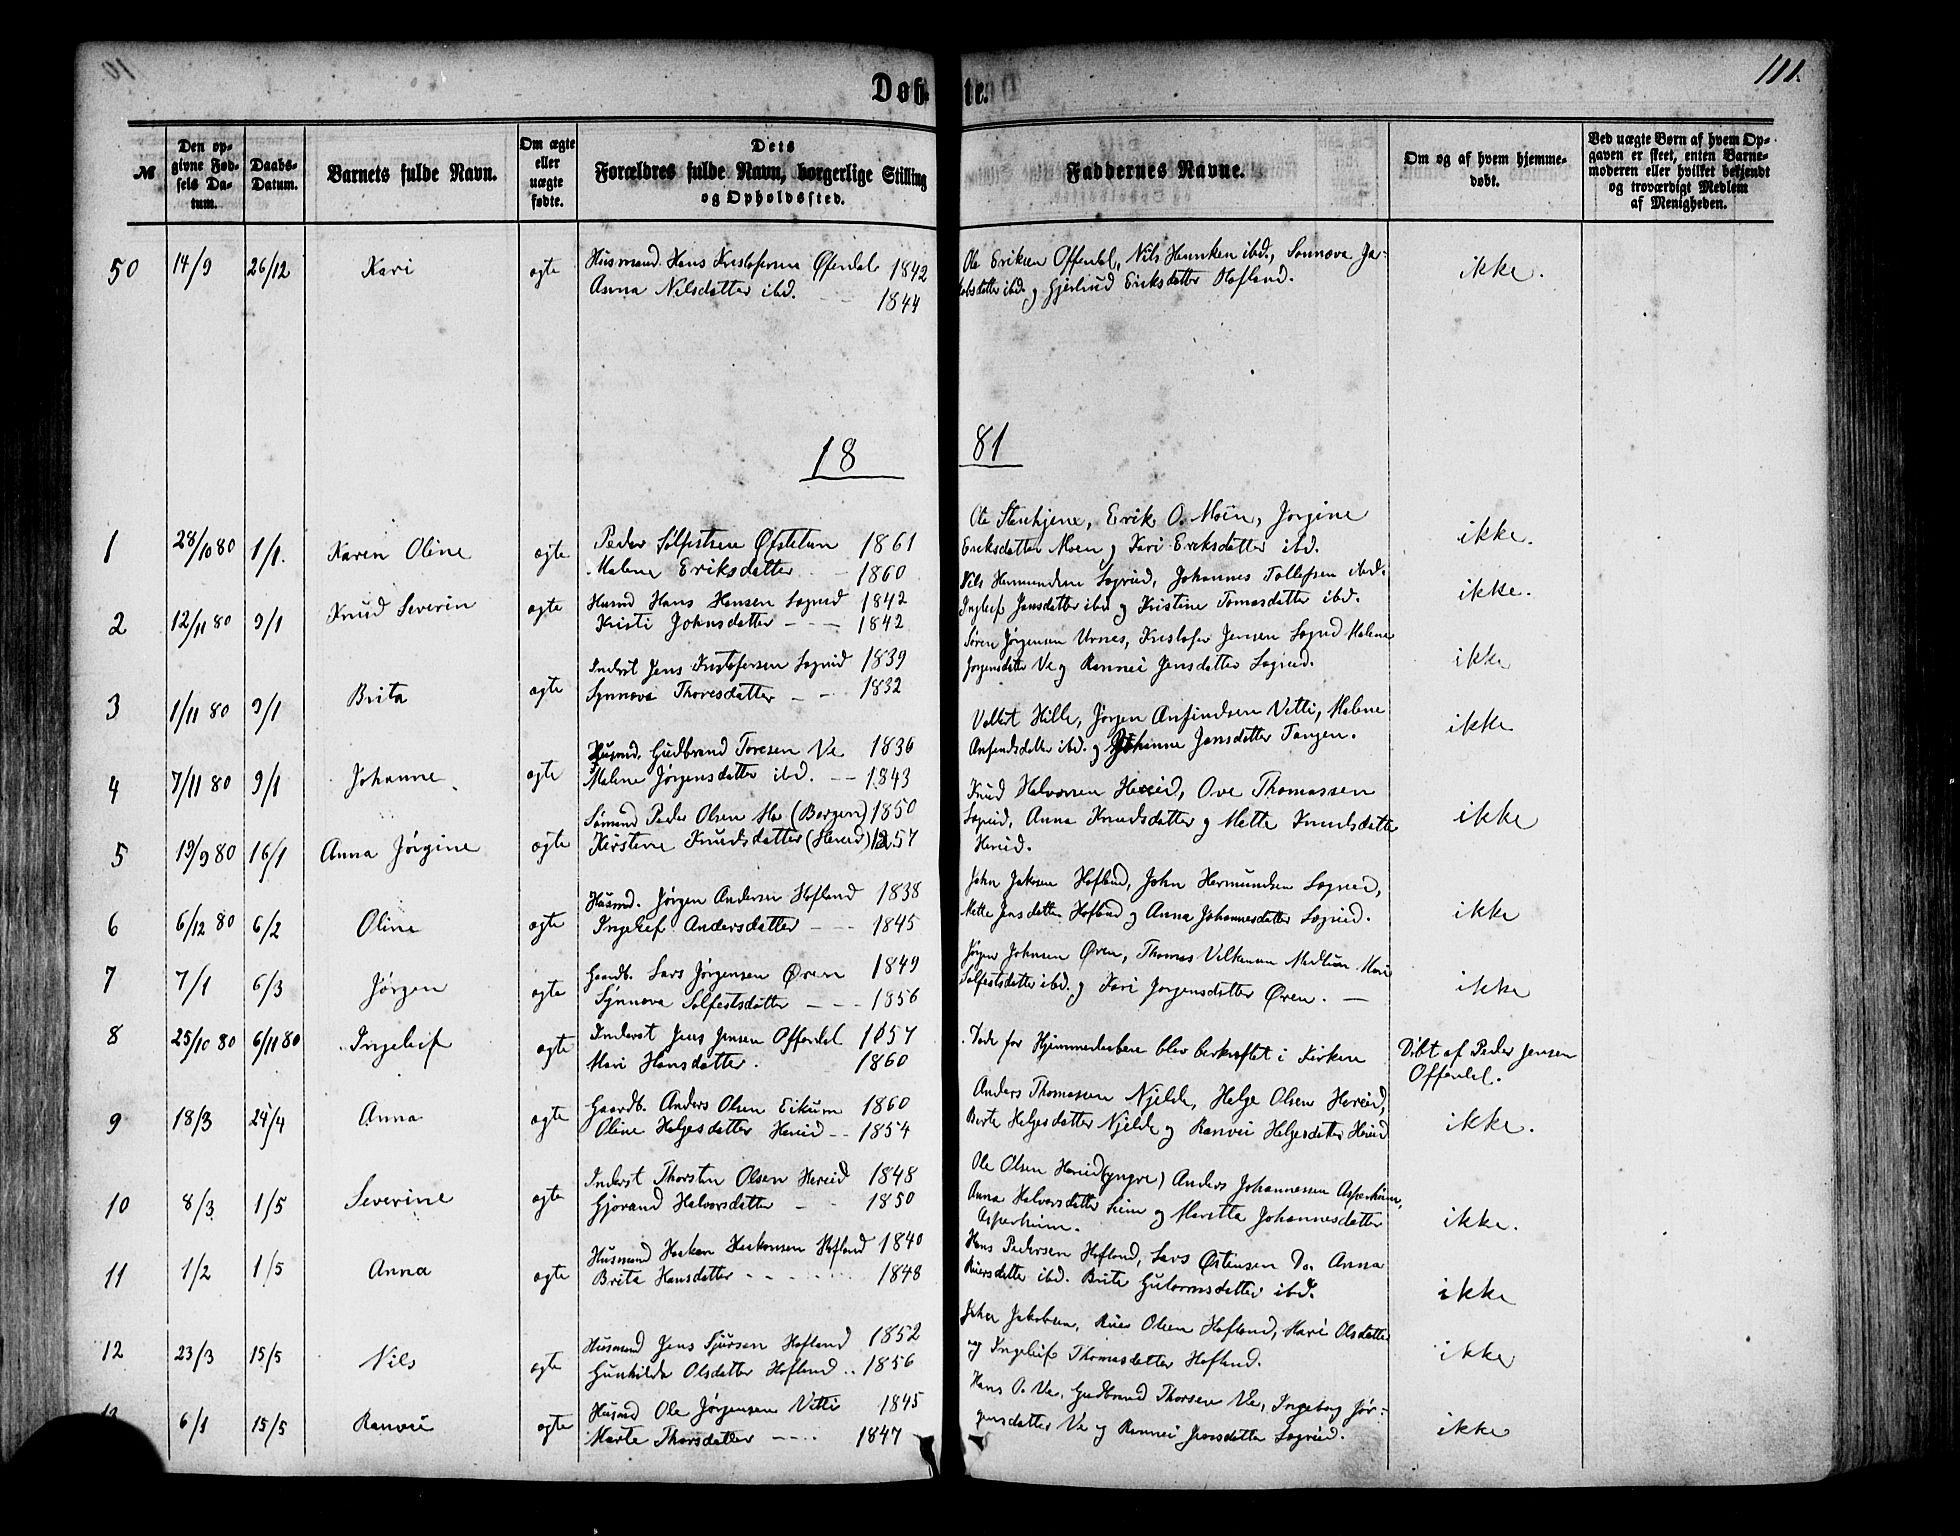 111.
Døbte.
№
Den opgivne Fødsels Datum.
Daabs-Datum.
Barnets fulde Navn.
Om ægte eller uægte fødte.
Dets Forældres fulde Navn, borgerlige Stilling og Opholdssted.
Faddernes Navne.
Om og af hvem hjemmedøbt.
Ved uægte Børn af hvem Opgaven er skeet, enten Barnemoderen eller hvilket bekjendt og troværdigt Medlem af Menigheden.
50 14/9 26/12 Kari ægte
Husmand Hans Kristofersen Øferdal 1842
Anna Nilsdatter ibd. 1844
Ole Eriksen Offerdal, Nils ibd., Sønnøve Ja-
kobsdatter ibd. og Gjertrud Eriksdatter Hofland.
ikke.
1881
1 28/10 80 1/1. Karen Oline ægte
Peder Solfestsen 1861
Malene Eriksdatter 1860
Ole Stenhjene, Erik O. Moen, Jorgine
Eriksdatter Moen og Kari Eriksdatter ibd.
ikke.
2 12/11 80 9/1 Knud Severin ægte
Husmd Hans Hansen Sogned 1842
Kristi Johnsdatter 1842
Nils Hermundsen Sogned, Johannes Tollefsen ibd.
Ingleif Jensdatter ibd og Kristine Tomasdatter ibd.
ikke.
3 1/11 80 9/1 Brita ægte
Inderst Jens Kristofersen Sogned 1839
Synnøva Thoresdatter 1832
Søren Jørgensen Urnes, Kristofer Jensen Sogned Malene
Jorgensdatter Ve og Rannei Jensdatter Sogned.
ikke
4 7/11 80 9/1 Johanne ægte
Husmd. Gudbrand Toresen Ve 1836
Malene Jørgensdatter ibd. 1843
Hille, Jørgen Anfindsen Vetti, Malene
Anfindsdatter ibd. og Johanne Jensdatter Tangen.
ikke
5 19/9 80 16/1 Anna Jørgine ægte
Sømand Peder Olsen Mo (Borgen) 1850
Kirstene Knudsdatter (Hereid) 1857
Knud Halvorsen Hereid, Ove Thomassen
Sogned, Anna Knudsdatter og Mette Knudsdatter
Hereid.
ikke
6 6/12 80 6/2 Oline ægte
Husmd. Jørgen Andersen Hofland 1838
Ingeleif Andersdatter 1845
John Jakobsen Hofland, John Hermundsen Sogned,
Mette Jensdatter Hofland og Anna Johannesdatter Sogned.
ikke
7 7/1 6/3 Jørgen ægte
Gaardb. Lars Jørgensen Øren 1849
Synnøva Solfestsdatter 1856
Jørgen Johnsen Øren, Thomas Mari
Solfestsdatter ibd. og Kari Jorgensdatter Øren.
ikke
8 25/10 80 6/11 80 Ingeleif ægte
Inderst Jens Jensen Offerdal 1857
Mari Hansdatter. 1860
for Hjemmedaaben blev bekræftet i Kirken
Døbt af Peder Jensen
Offerdal.
9 18/3 24/4 Anna ægte
Gaardb. Anders Olsen Eikum 1860
Oline Helgesdatter Hereid 1854
Anders Thomassen Njelde, Helge Olsen Hereid,
Berte Helgesdatter Njelde og Ranvei Helgesdatter Hereid
ikke.
10 8/3 1/5 Severine ægte
Inderst Thorsten Olsen Hereid 1848
Gjorand Halvorsdatter 1850
Ole Olsen Hereid (yngre) Anders Johannesen Asperheim,
Anna Halvorsdatter Seim og Maritta Johannesdatter
Asperheim.
ikke.
11 1/2 1/5 Anna ægte
Husmand Haakon Haakonsen Hofland 1840
Brita Hansdatter 1848
Hans Pedersen Hofland, Lars Østensen Do. Anna
ibd. Brite Gutormsdatter ibd.
ikke
12 23/3 15/5 Nils ægte
Husmand Jens Sjursen Hofland 1852
Gunhilda Olsdatter Hofland 1856
Johan Jakobsen, Olsen Hofland, Mari Olsdatter
og Ingeleif Thomasdatter Hofland.
ikke
13 6/1 15/5 Ranvei ægte
Husmd Ole Jørgensen Vetti 1845
Marte Thorsdatter 1847
Hans O. Ve, Gudbrand Thorsen Ve, Ingeborg Jør-
gensdatter Ve og Rannei Jensdatter Sogned.
ikke